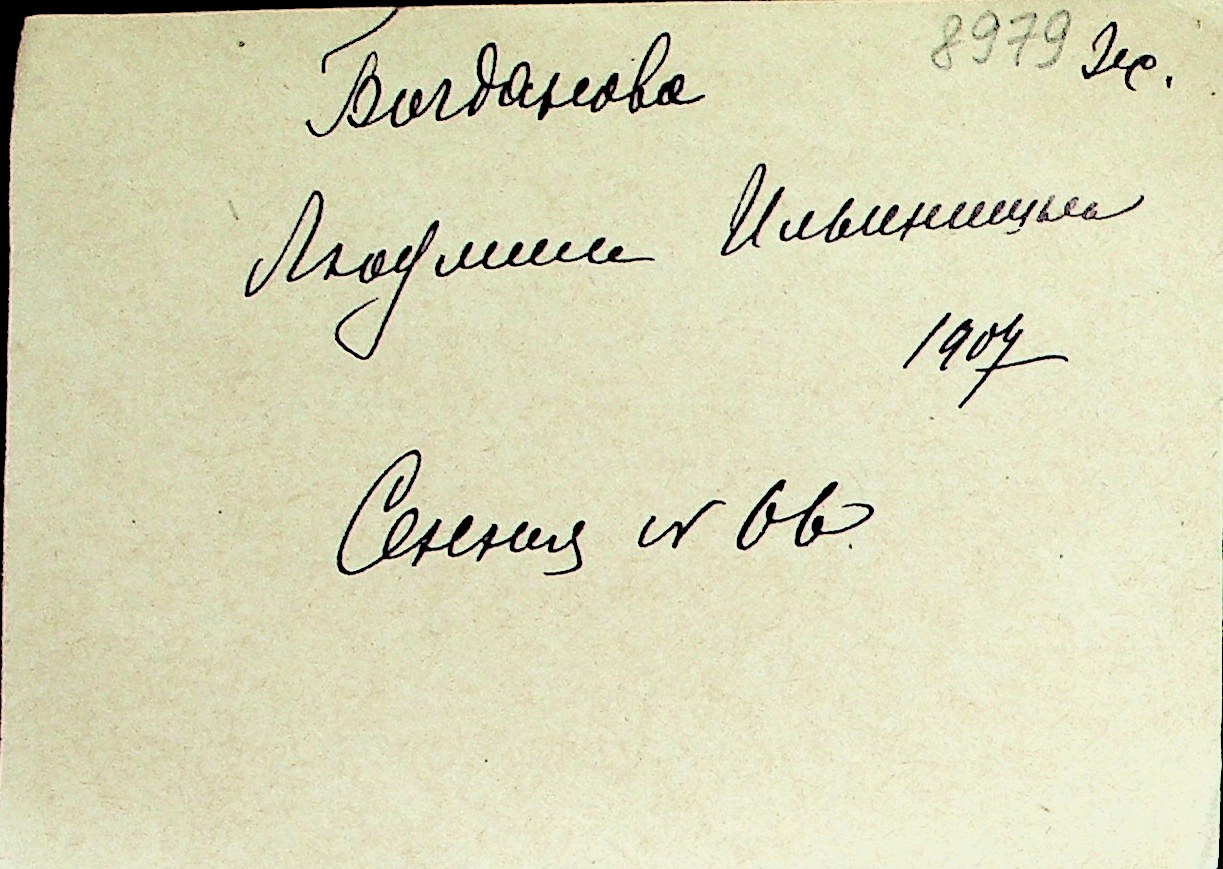 Богданова 8979
Людмила Ильинишна
1907
Сенная